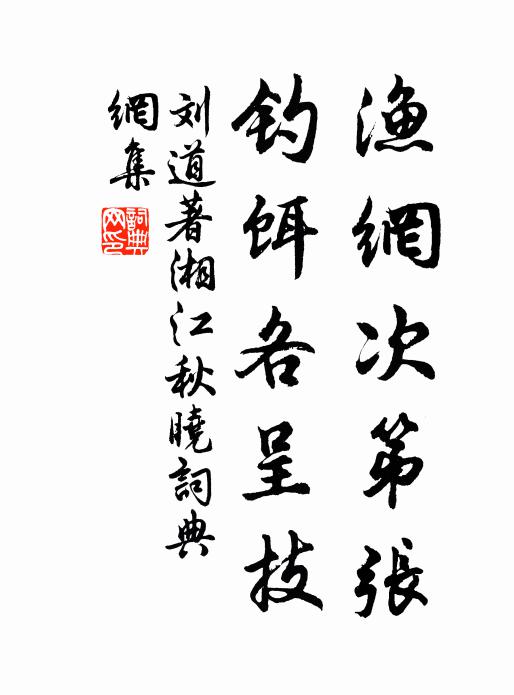 渔網次第張
钓餌各呈技
刘道著湘江秋曉詞典
網集
詞典
网印